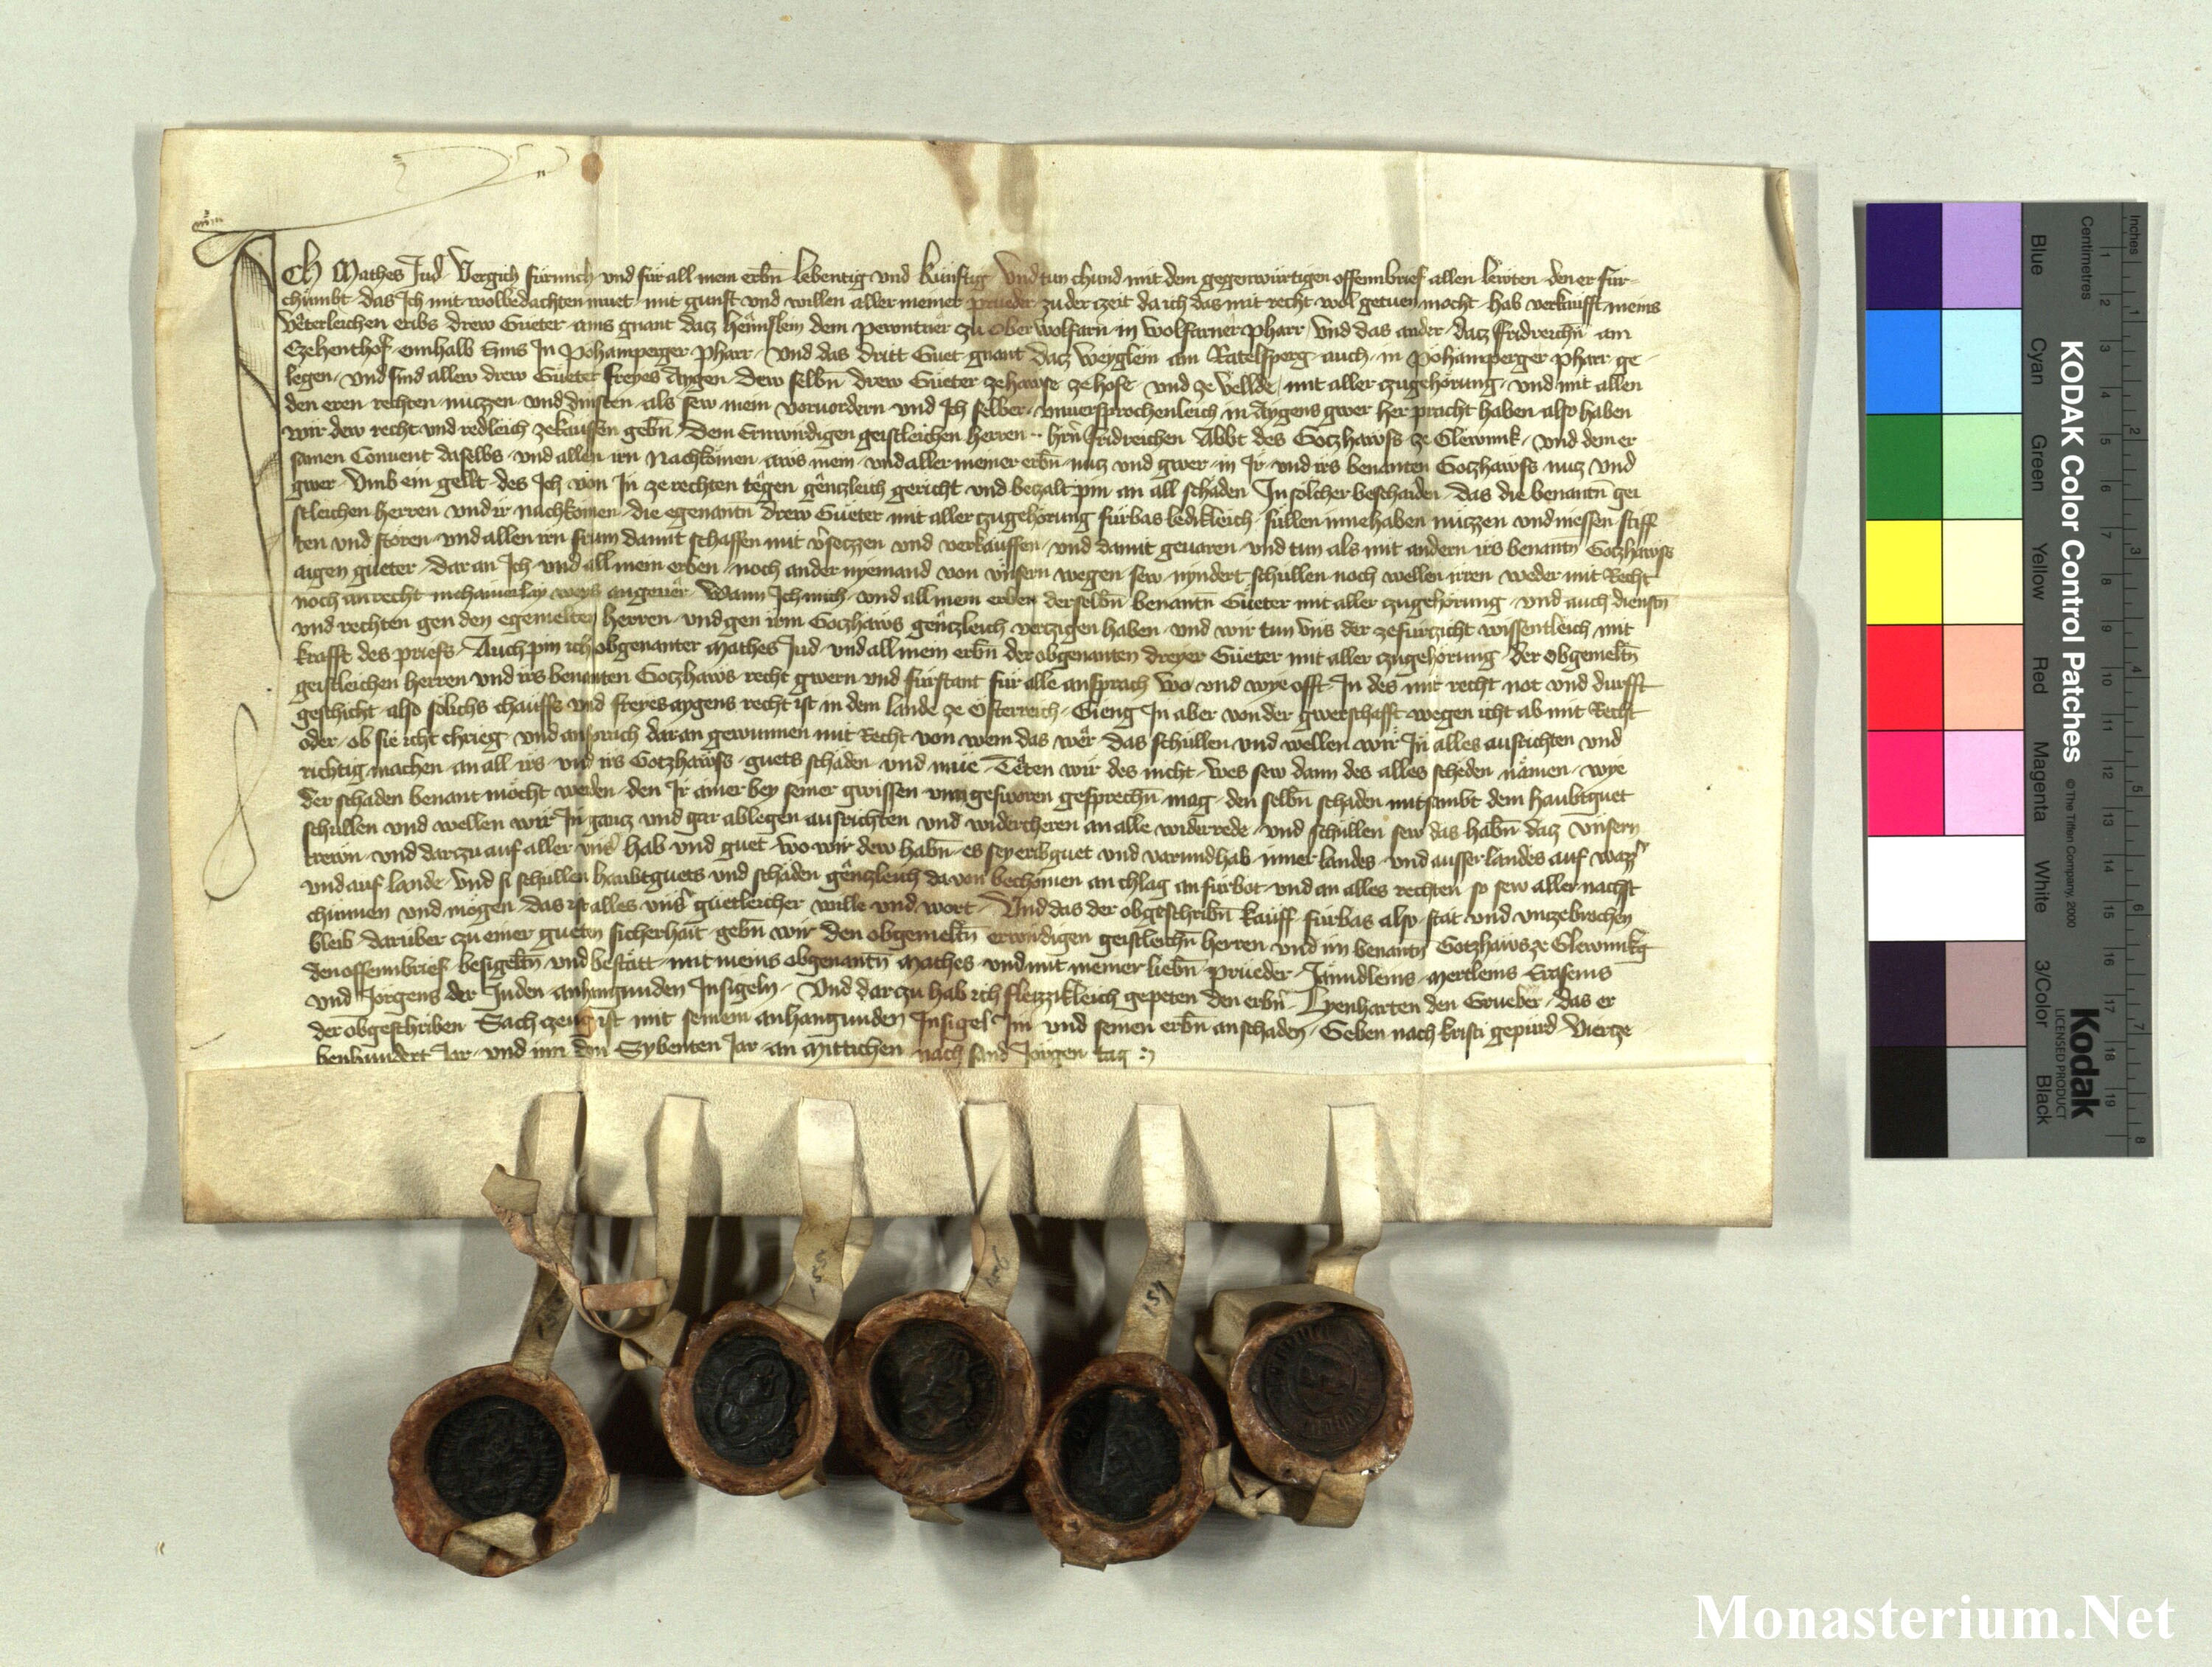 Ich Mathes Jud Vergich für mich und für all mein erbn̄ lebentig und künftig Und tun chund mit dem gegenwürtigen offennbrief allen lewten den er für
chümbt das Ich mit wolbedachtem muet mit gunst und willen aller meiner prueder zu der czeit da ich das mit recht wol getuen mocht hab verkaufft meins
Veterleichen eribs drew Güeter ains gnant datz Hennslein dem zu Oberwolfarn in Wolfarner Pharr Und das ander datz Fridreichn̄ am
Czehenthof ennhalb Enns In Pohamperger Pharr Und das dritt Guet gnant datz Weyglein am Ratelsperg auch in Pohamperger Pharr ge
legen und sind allew drew Güeter freyes Aygen Dew selbn̄ drew Güeter ze hawse ze hofe und ze vellde mit aller czugehörung und mit allen
den eren rechten nutzen und dinsten als sew mein vorvordern und Ich selber unversprochenleich in Aygens gwer her pracht haben also haben
wir dew recht und redleich ze kauffen gebn̄ Dem Erwirdigen geistleichen herren hrn̄ Fridreichen Abbt des Gotzhawss ze Glewnnk und dem er
samen Convent daselbs und allen irn Nachkomen aws mein und aller meiner erbn̄ nutz und gwer in Ir und irs benanten Gotzhawss nutz Und
gwer Umb ein gellt des Ich von In ze rechten tegen gentzleich gericht und betzalt pin an all schäden In solcher beschaiden das die benantn̄ gei
stleichen herren und ir nachkomen die egenantn̄ drew Güeter mit aller czugehörung fürbas ledikleich süllen innehaben nützzen und niessen stiff
ten und stören und allen irn frum damit schaffen mit v̄setzzen und verkauffen und damit gevaren und tun als mit andern irs benantn̄ Gotzhawss
aigen güeter dar an Ich und all mein erben noch ander nyemand von unsern wegen sew nyndert schullen noch wellen irren weder mit Recht
noch an recht in chainerlay weys angever Wann Ich mich und all mein erben derselbn̄ benantn̄ Güeter mit aller czugehörung und auch diensten
und rechten gen den egemelten herren und gen irm Gotzhaws gentzleich vertzigen haben und wir tun uns der ze fürtzicht wissentleich mit
krafft des priefs Auch pin ich obgenanter Mathes Jud und all mein erbn̄ der obgenanten dreyer Güeter mit aller czugehörung der obgemeltn̄
geistleichen herren und irs benanten Gotzhaws recht gwern und fürstant für alle ansprach wo und wye offt In des mit recht not und durfft
geschicht also sölichs chauffs und freyes aygens recht ist in dem lande ze Osterreich Gieng In aber von der gwerschafft wegen icht ab mit Recht
oder ob sie icht chrieg und ansprach dar an gewunnen mit Recht von wem das wer das schullen und wellen wir In alles ausrichten und
richtig machen an all irs und irs Gotzhawss guets schäden und müe Teten wir des nicht wes sew dann des alles scheden nämen wye
der schaden benant möcht werden den Ir ainer bey seiner gwissen ungesworen gesprechn̄ mag den selbn̄ schaden mitsambt dem haubtguet
schullen und wellen wir In gantz und gar ablegen ausrichten und widercheren an alle widerrede und schullen sew das habn̄ datz unsern
trewn und dartzu auf aller uns̄ hab und guet wo wir dew habn̄ es sey eribguet und varundhab inner landes und ausser landes auf wazz̄
und auf lande Und si schullen haubtguets und schäden gentzleich davon bechomen an chlag an fürbot und an alles rechten so sew aller nachst
chunnen und mögen das ist alles uns̄ güetleicher wille und wort Und das der obgeschribn̄ kauff fürbas also stät und untzebrochen
bleib darüber czu einer gueten sicherhait gebn̄ wir den obgemeltn̄ erwirdigen geistleichn̄ herren und irm benantn̄ Gotzhaws ze Glewnnkg
den offennbrief besigeltn̄ und bestätt mit meins obgenantn̄ Mathes und mit meiner liebn̄ prüeder Jänndleins Mertleins Erasems
und Jorgens der Juden anhangunden Insigeln Und dar czu hab ich fleizzikleich gepeten den erbn̄ Lyenharten den Grueber das er
der obgeschriben Sach czeug ist mit seinem anhangunden Insigel Im und seinen erbn̄ an schaden Geben nach kristi gepürd Viertze
henhundert Jar und im dem Sybenten Jar an Mittichen nach sand Jörgen tag
155
156
157
Monasterium.Net
KODAK Color Control Patches
© The Tiffen Company, 2000
Kodak
LICENSED PRODUCT
Inches
Centimetres
Blue
Cyan
Green
Yellow
Red
Magenta
White
3/Color
Black